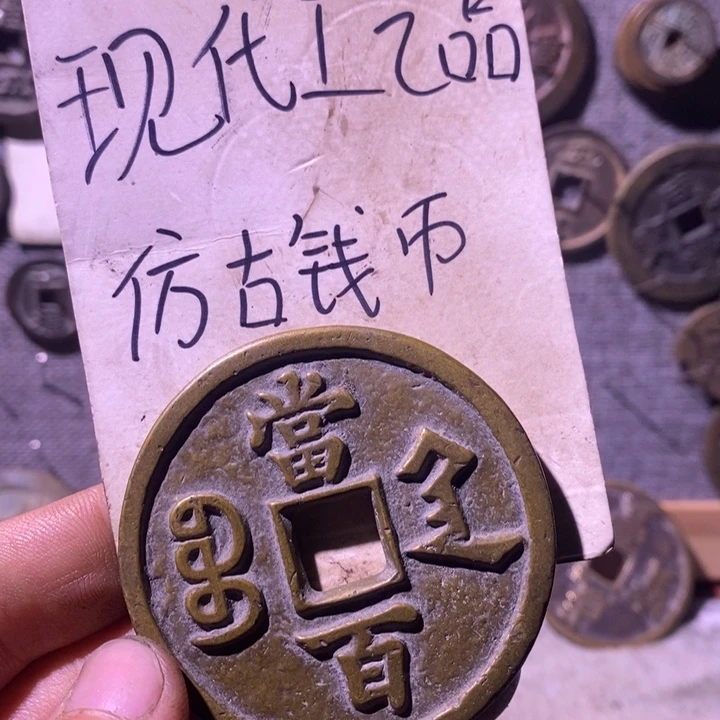 现代工艺品
仿古钱币
當
百